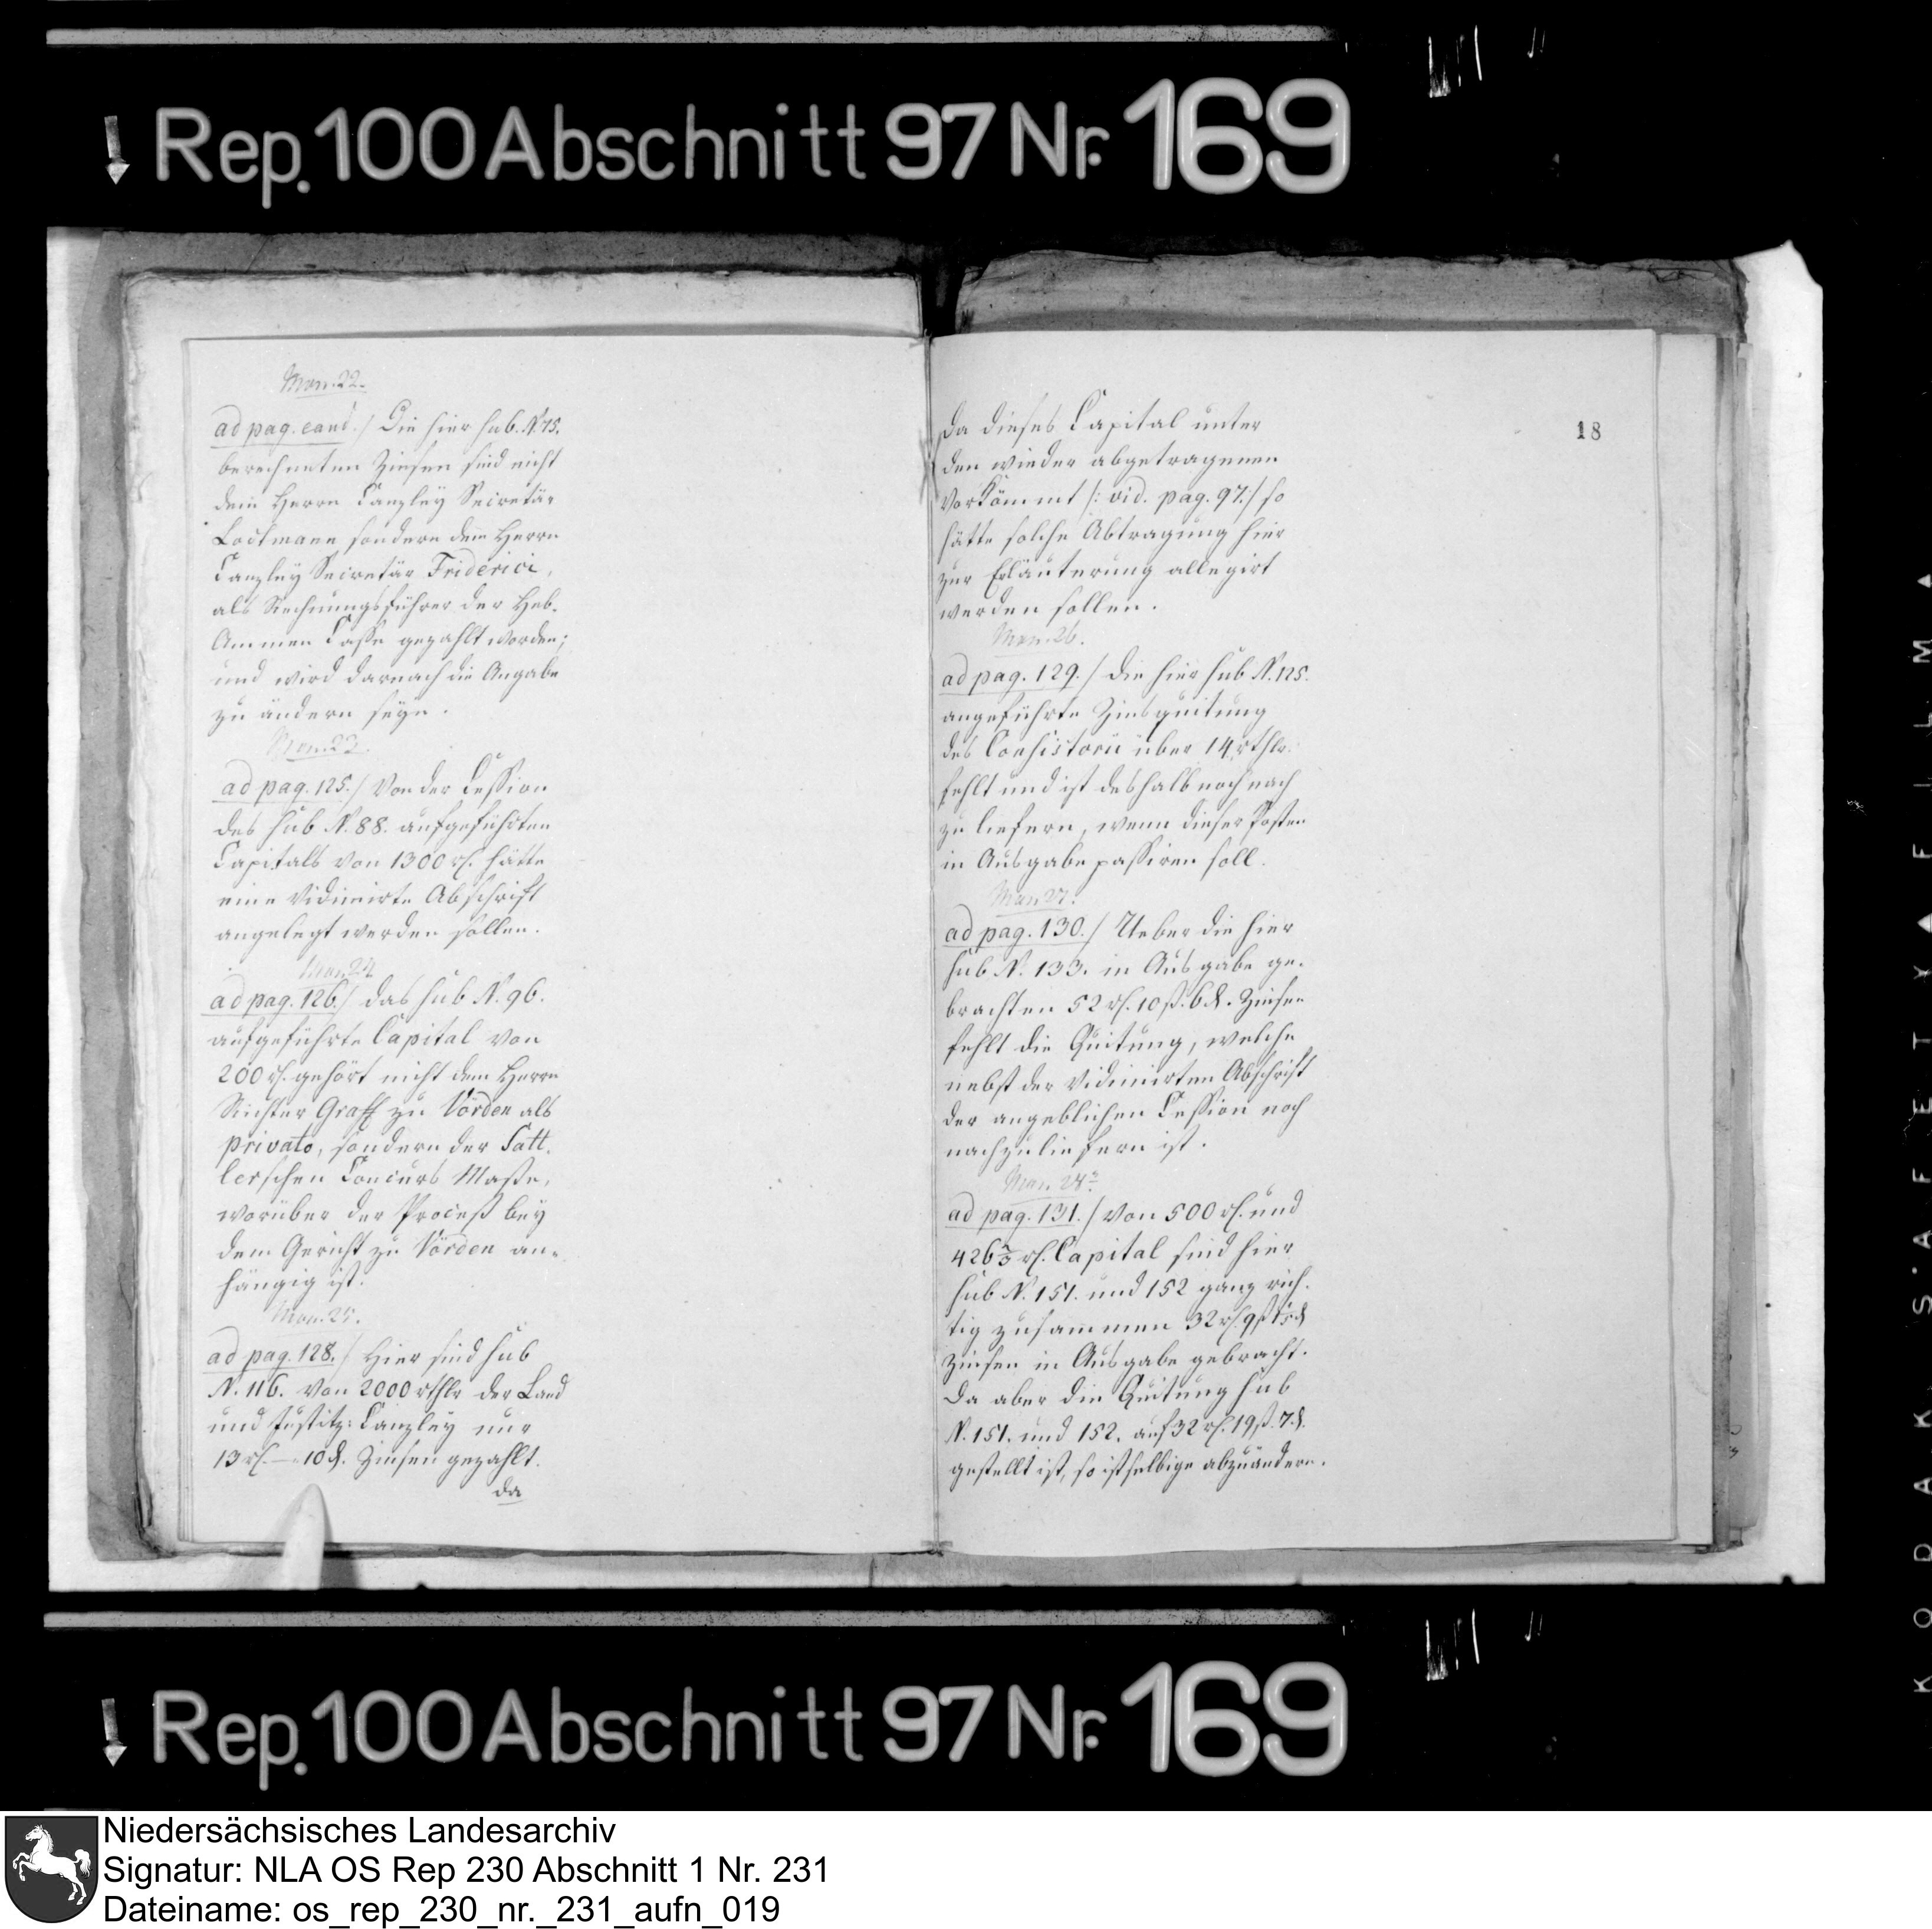 Rep. 100 Abschnitt 97 Nr. 169
Mon. 22.
ad pag. eand. / Die hier sub. N. 75.
berechneten Zinsen sind nicht
dem Herrn Canzley Secretär
Lodtmann sondern dem Herrn
Canzley Secretär Friderici,
als Rechnungsführer der Heb-
Ammen Casse gezahlt worden;
und wird darnach die Angabe
zu ändern seyn.
Mon. 23.
ad pag. 125. / Von der Cession
des sub N. 88. aufgeführten
Capitals von 1300 rl. hätte
eine vidimirte Abschrift
angelegt werden sollen.
Mon. 24
ad pag. 126. / das sub N. 96.
aufgeführte Capital von
200 rl. gehört nicht dem Herrn
Richter Graff zu Vörden als
privato, sondern der Satt-
lerschen Concurs Masse,
worüber der Proceß bey
dem Gericht zu Vörden an-
hängig ist.
Mon. 25.
ad pag. 128. / Hier sind sub
N. 116. von 2000 rthlr der Land
und Justitz-Canzley nur
13 rl. — 10 d. Zinsen gezahlt.
da
18
Da dieses Capital unter
den wieder abgetragenen
vorkömmt /: vid. pag. 97. / so
hätte solche Abtragung hier
zur Erläuterung allegirt
werden sollen.
Mon. 26.
ad pag. 129. / die hier sub N. 125.
angeführte Zinsquitung
des Consistorii über 14 rthlr.
fehlt und ist deshalb noch nach
zu liefern, wenn dieser Posten
in Ausgabe passiren soll.
Mon. 27.
ad pag. 130. / Ueber die hier
sub N. 133. in Ausgabe ge-
brachten 52 rl. 10 ß. 6 d. Zinsen
fehlt die Quitung, welche
nebst der vidimirten Abschrift
der angeblichen Cession noch
nachzuliefern ist.
Mon. 28.
ad pag. 131. / Von 500 rl. und
426 2/3 rl. Capital sind hier
sub N. 151. und 152 ganz rich-
tig zusammen 32 rl. 9 ß
Zinsen in Ausgabe gebracht.
Da aber die Quitung sub
N. 151. und 152. auf 32 rl. 19 ß. 7 d.
gestellt ist, so ist selbige abzuändern.
Rep. 100 Abschnitt 97 Nr. 169
KODAK SAFETY FILM
Niedersächsisches Landesarchiv
Signatur: NLA OS Rep 230 Abschnitt 1 Nr. 231
Dateiname: os_rep_230_nr._231_aufn_019